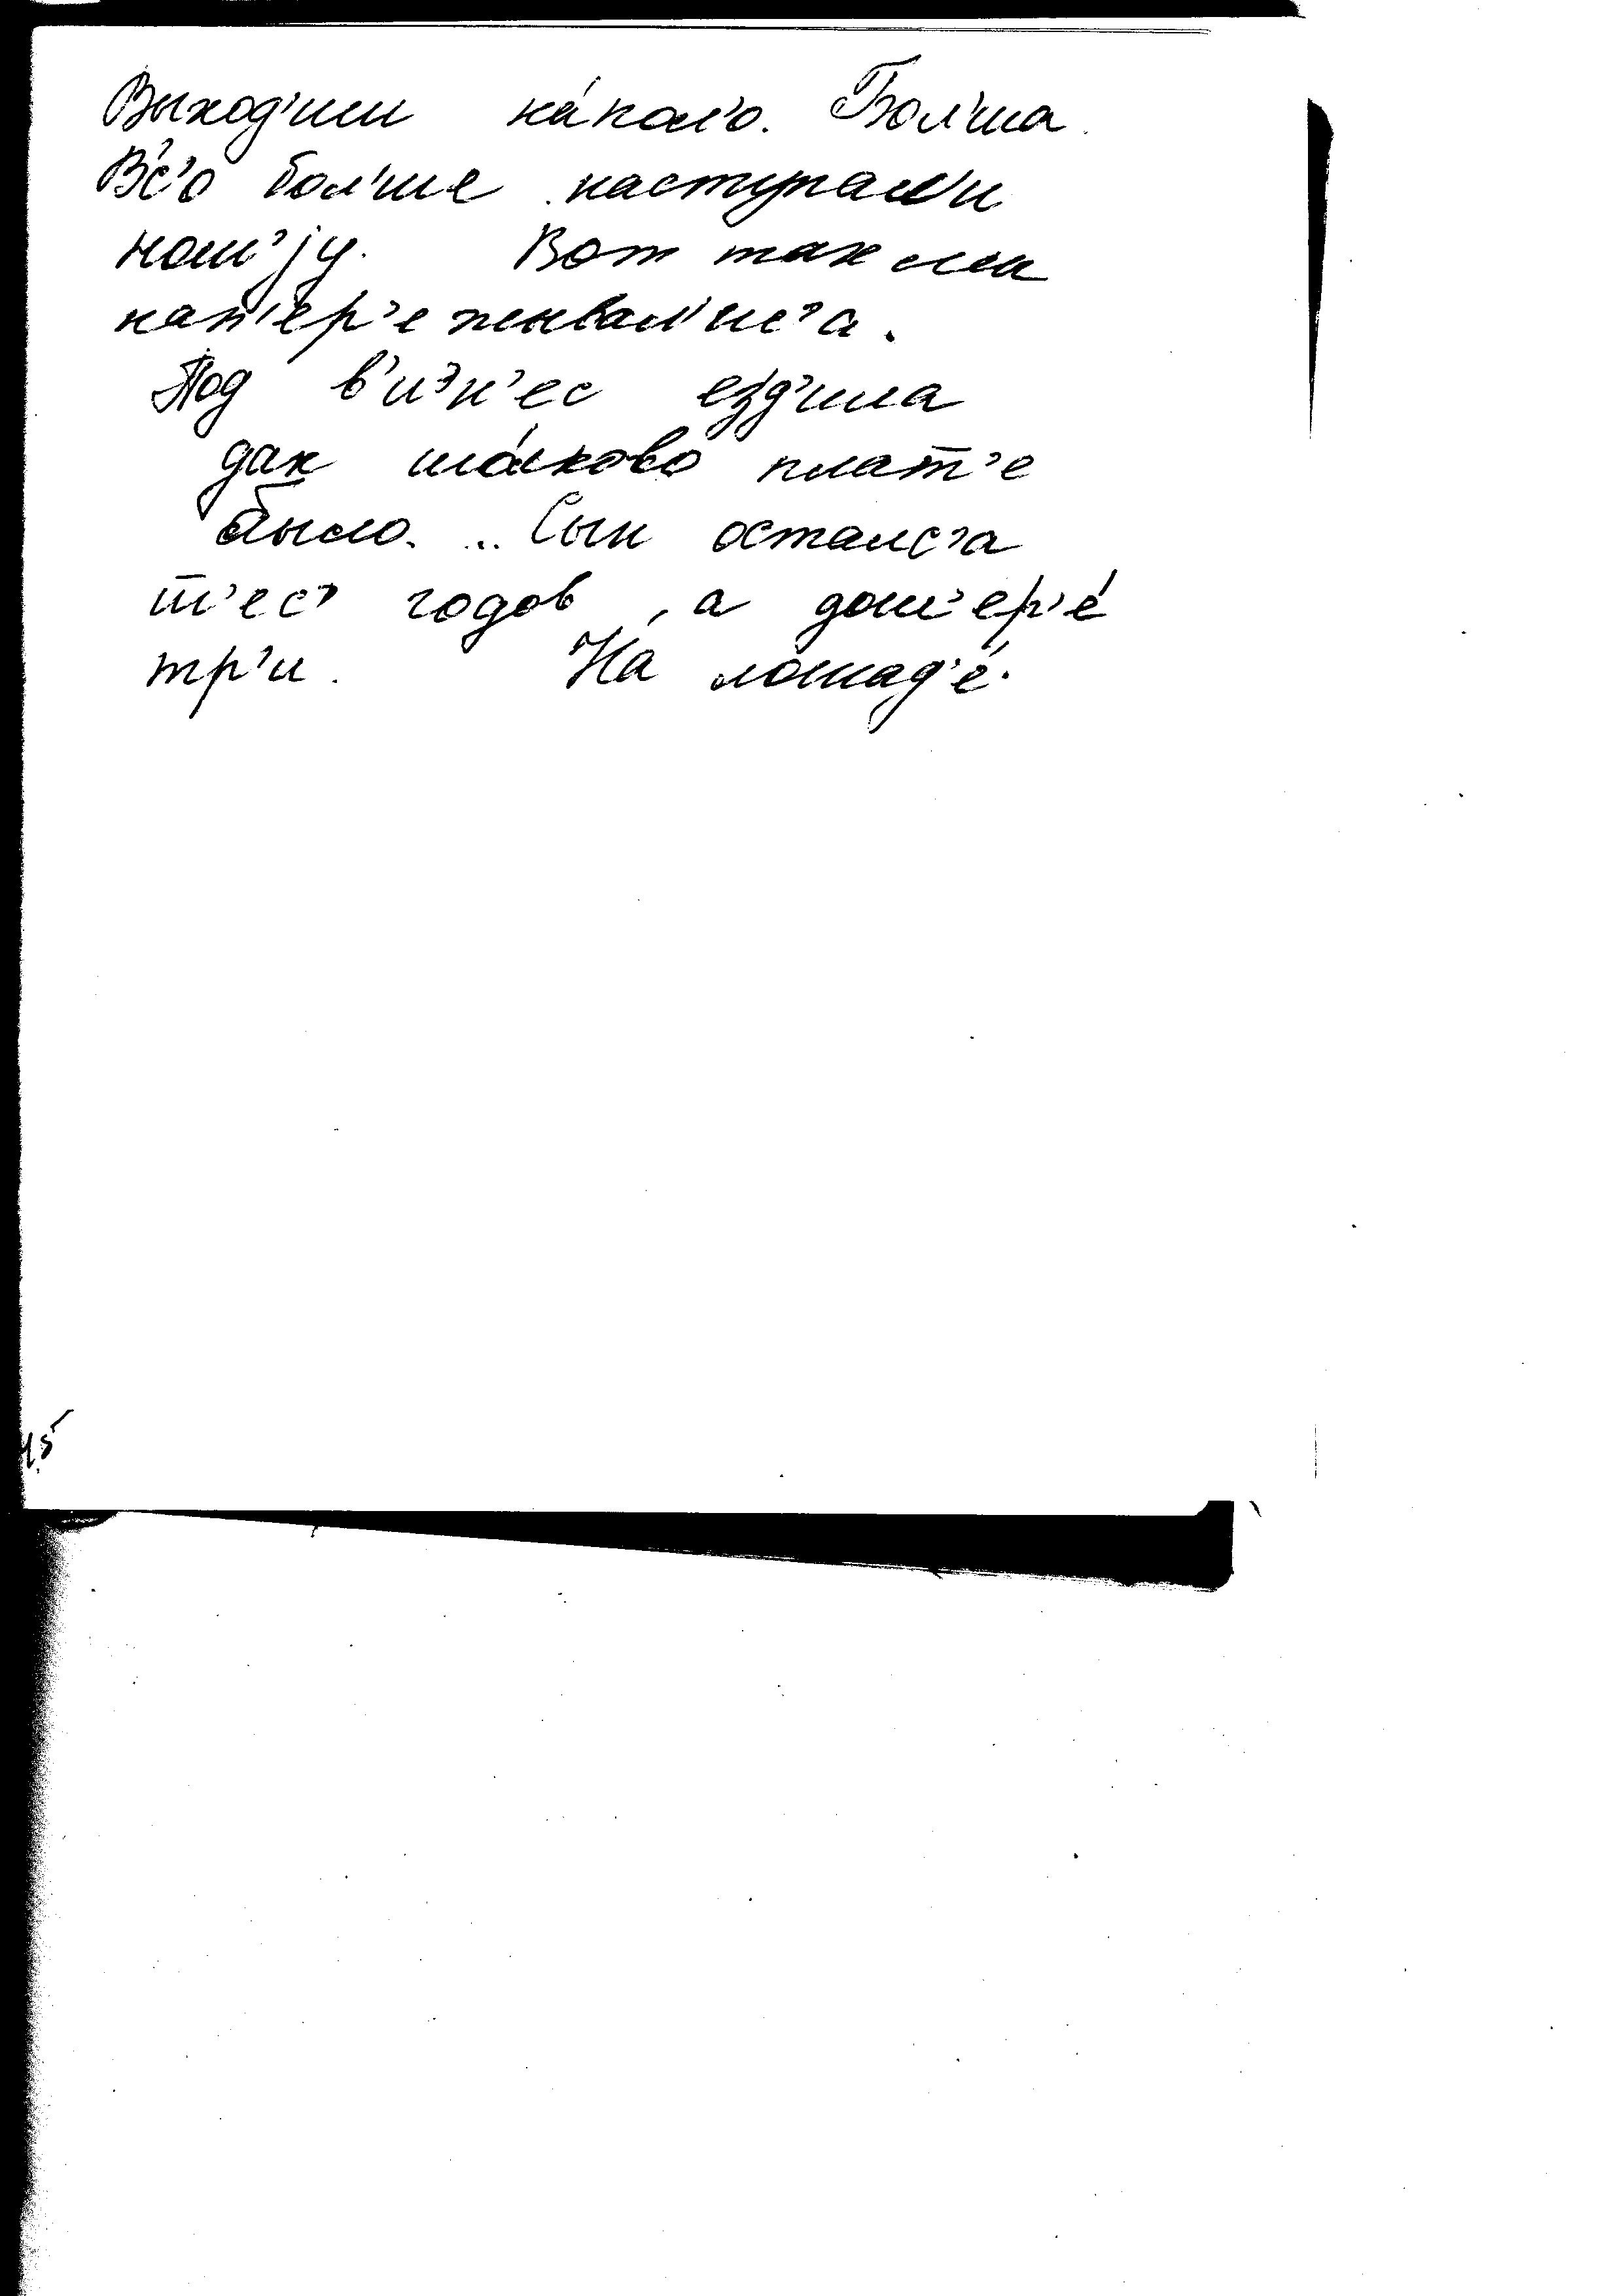 Выход'или на́пол'о. Бол'ша.
В'с'о бол'ше наступал'и
ноч'jу. Вот так мы
нап'ер'ежывал'ис'а.
Под в'иэн'ес ез'д'ила
дак шо́лково плат'е
было. .. Сын осталс'а
ш'ес' годов, а доч'ер'е́
тр'и. На́ лошад'е́.
45